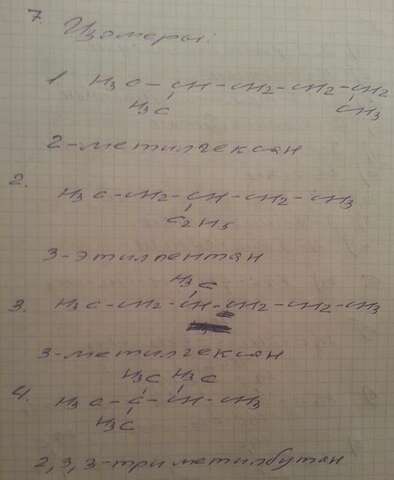 7. Изомеры:
1 H3C - CH - CH2 - CH2 - CH2
H3C CH3
2-метилгексан
2. H3C - CH2 - CH - CH2 - CH3
C2H5
3-этилпентан
H3C
3. H3C - CH2 - CH - CH2 - CH2 - CH3
3-метилгексан
H3C H3C
4. H3C - C - CH - CH3
H3C
2,3,3-триметилбутан